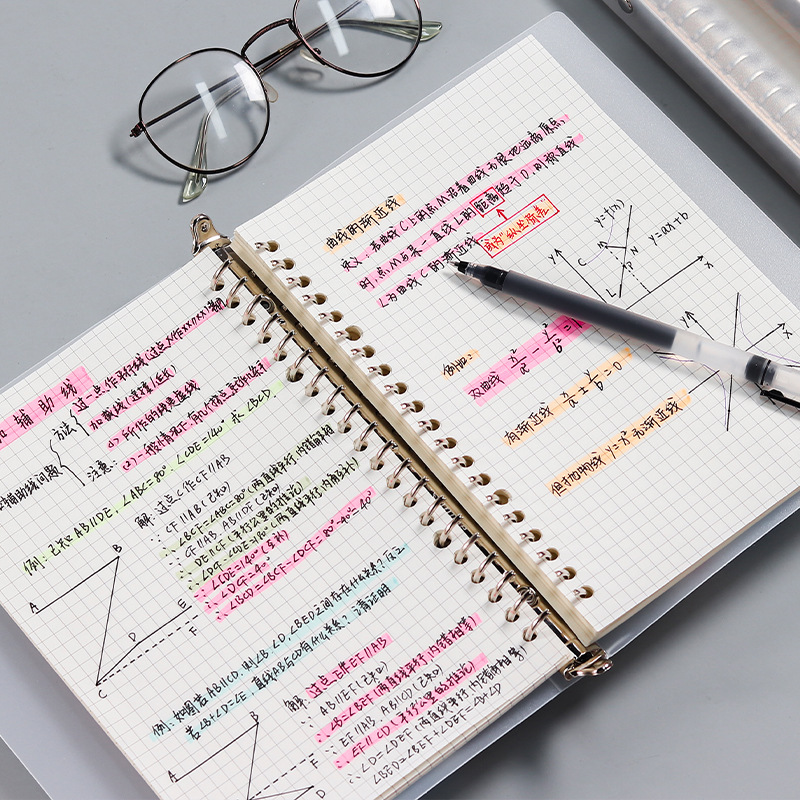 加辅助线
方法
过一点作平行线(过点X作XX∥XX)
加截线(连接/延长)
注意:
(1) 所作的线是虚线
(2) 一般情况下,有几个拐点
辅助线问题
例:已知AB∥DE,∠ABC=80°,∠CDE=140°求∠BCD.
解:过点C作CF∥AB
∵ CF∥AB(已知)
∴ ∠BCF=∠ABC=80°(两直线平行,内错角相等)
∵ CF∥AB, AB∥DF(已知)
∴ DE∥CF(平行公理的推论)
∴ ∠DCF+∠CDE=180°(两直线平行,同旁内角互补)
∵ ∠CDE=140°(已知)
∴ ∠DCF=40°
∴ ∠BCD=∠BCF-∠DCF=80°-40°=40°
A
B
C
D
E
F
例:如图若AB∥CD,则∠B、∠D、∠BED之间存在什么关系?反之
若∠B+∠D=∠E,直线AB与CD有什么关系?请证明
解:过点E作EF∥AB
∵ AB∥EF(已知)
∴ ∠B=∠BEF(两直线平行,内错角相等)
∵ EF∥AB, AB∥CD(已知)
∴ EF∥CD(平行公理的推论)
∴ ∠D=∠DEF(两直线平行,内错角相等)
∠BED=∠BEF+∠DEF=∠B+∠D
A
B
F
D
曲线的渐近线
定义:若曲线C上的点M沿着曲线无限地远离原点
时,点M与某一直线L的距离趋于0,则称直线
L为曲线C的渐近线
或为"纵坐标差"
y
y=f(x)
C
M
N
P
L
y=ax+b
x
例如:
双曲线 x²/a² - y²/b² = 1
有渐近线 x/a ± y/b = 0
但抛物线 y=x² 无渐近线
y
x